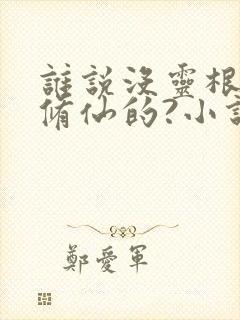 誰說沒靈根
脩仙的?小說
鄭愛軍